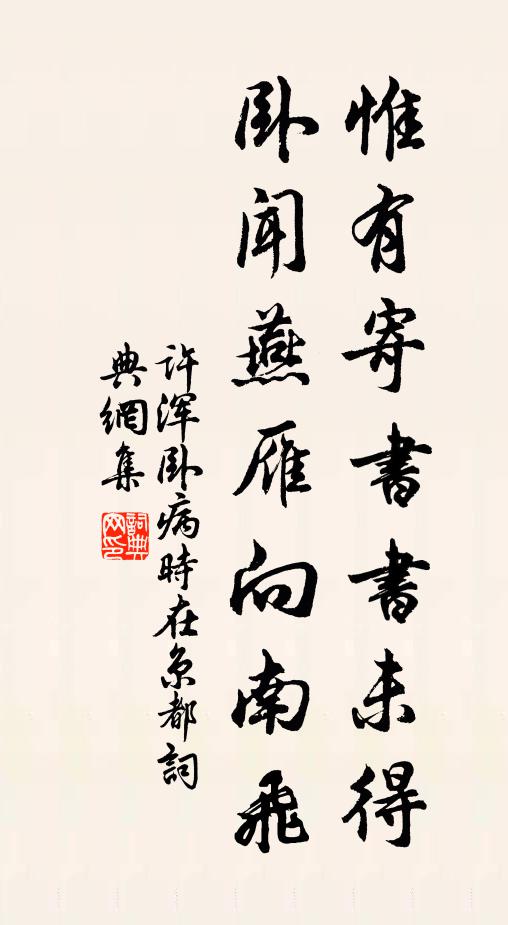 惟有寄書書未得
卧聞燕雁向南飛
许渾卧病時在京都詞
典網集
詞典
网印